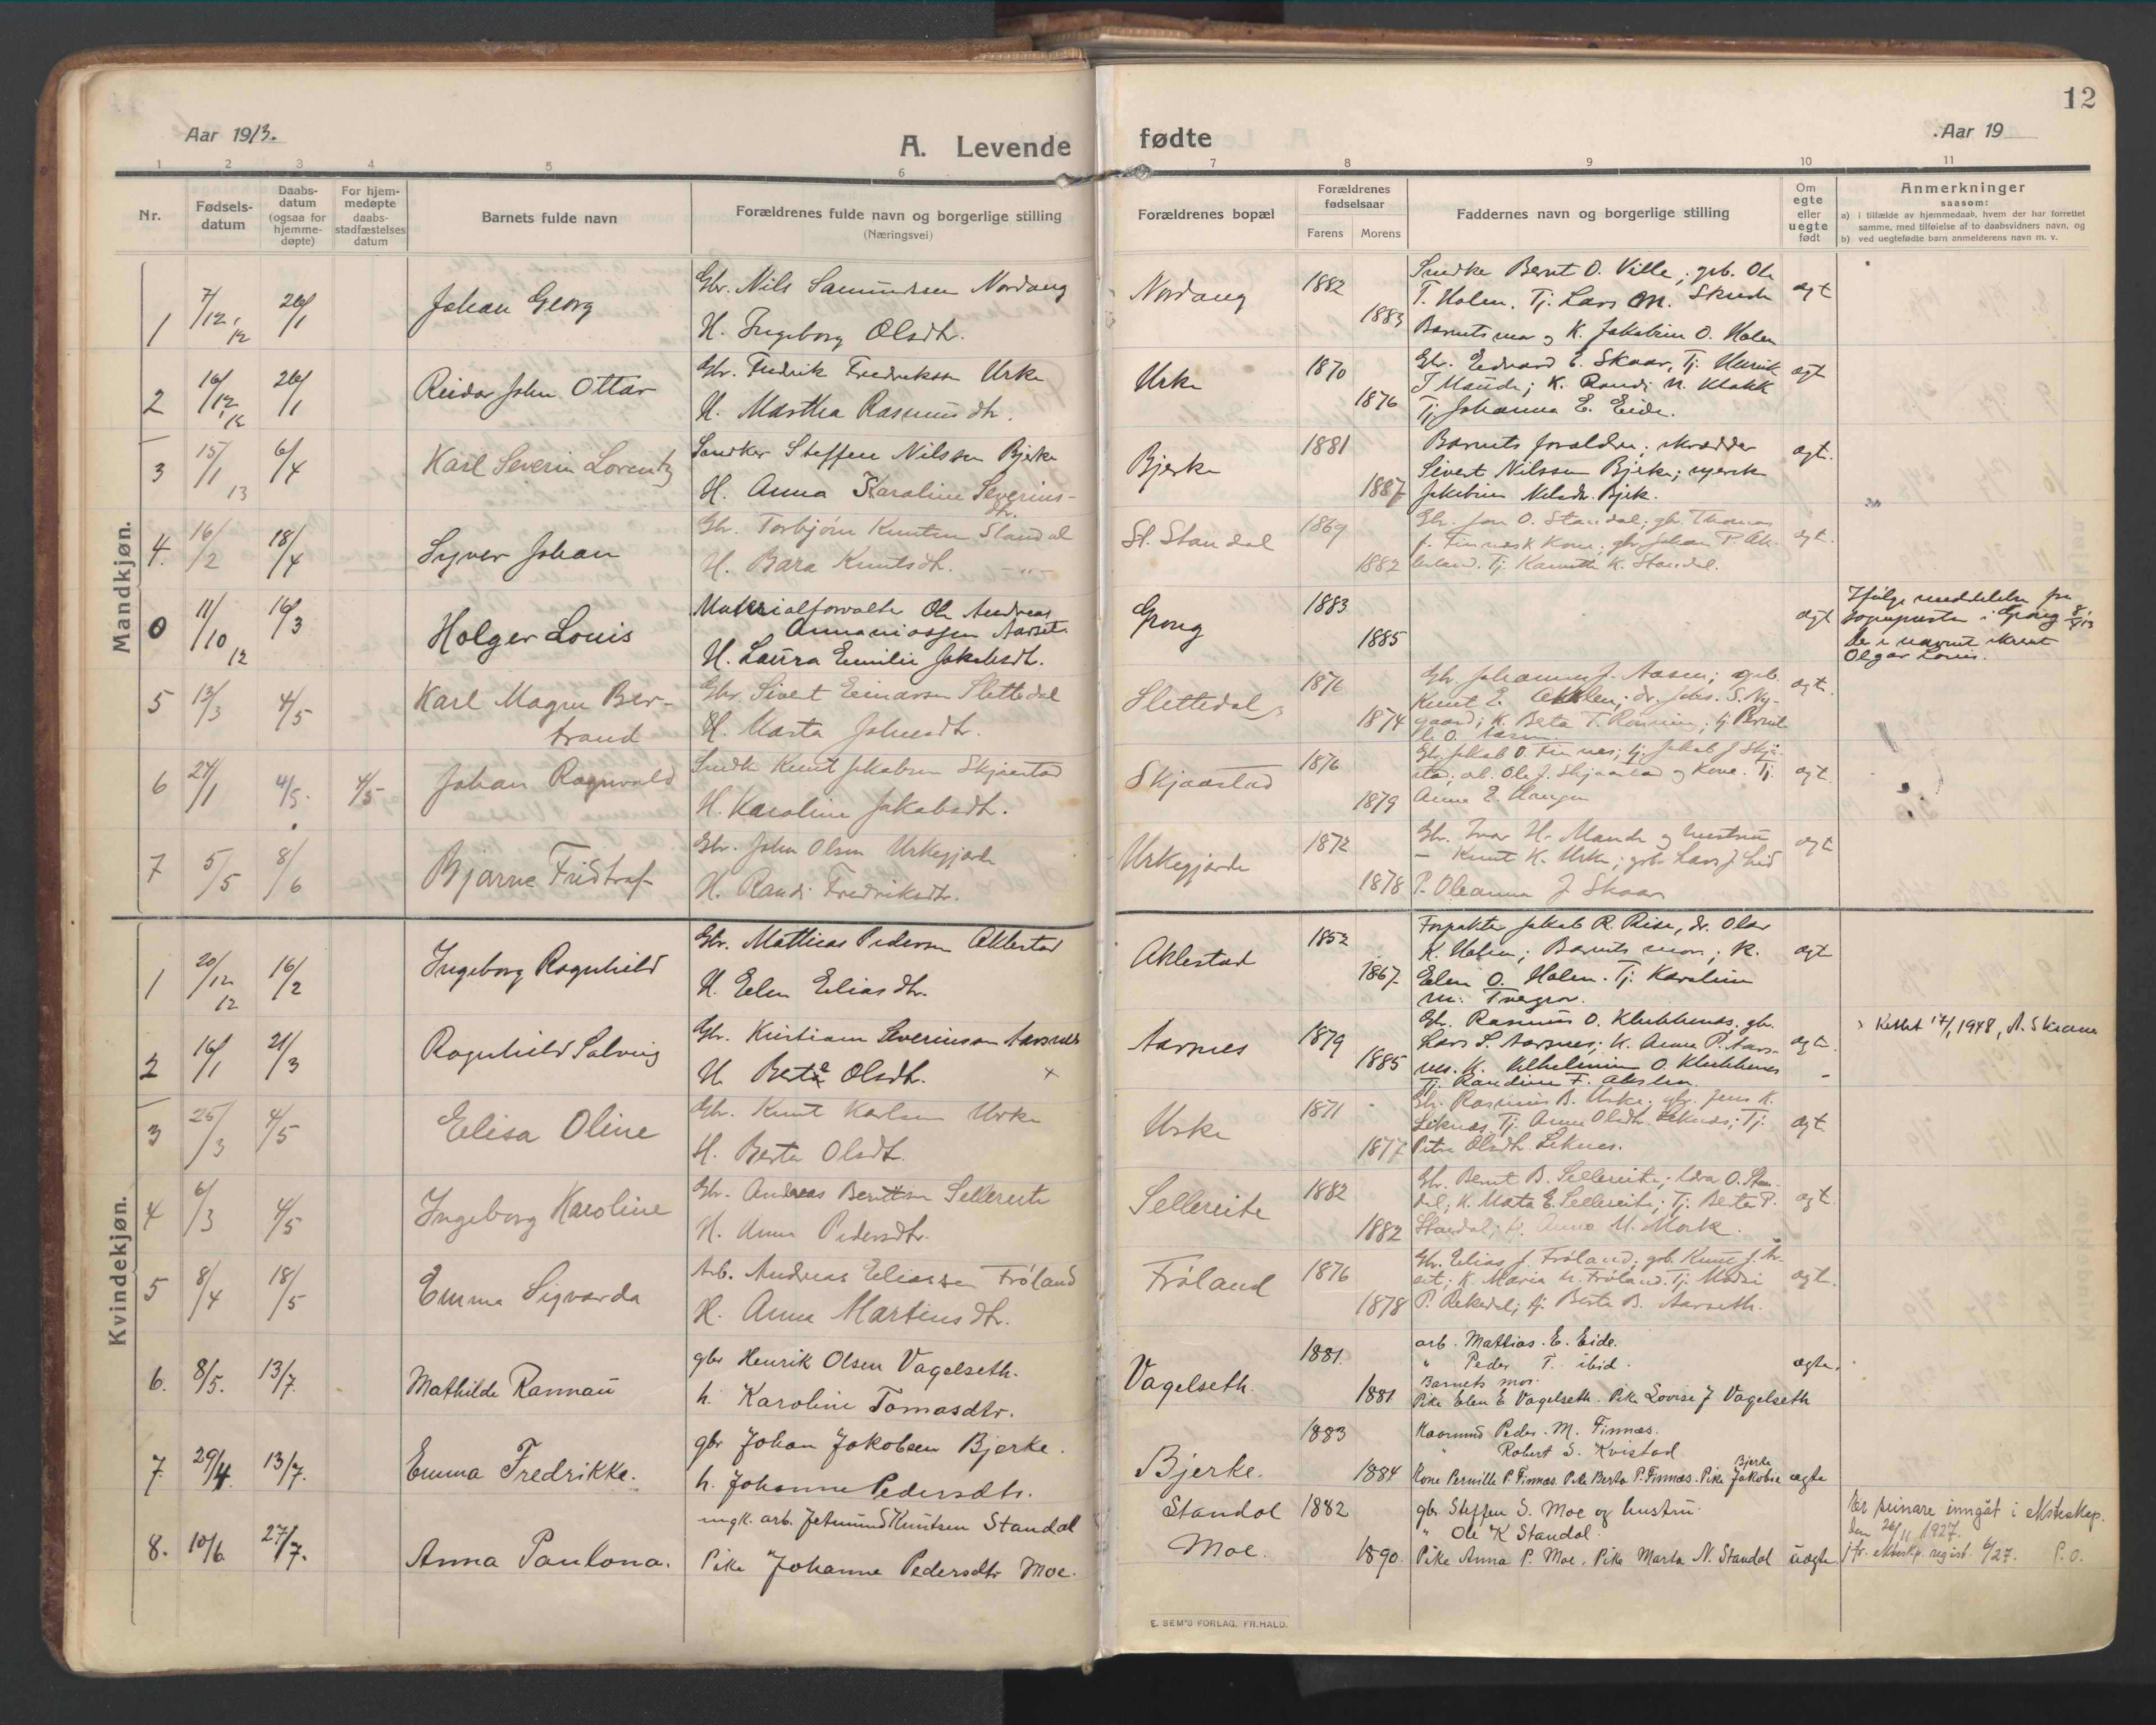 Aar 1913.
A. Levende
1 2 3 4 5 6
Nr.
Fødsels-
datum
Daabs-
datum
(ogsaa for
hjemme-
døpte)
For hjem-
medøpte
daabs-
stadfæstelses
datum
Barnets fulde navn
Forældrenes fulde navn og borgerlige stilling
(Næringsvei)
Mandkjøn.
1 7/12 12 26/1 Johan Georg
Gbr. Nils Samundsen Nordang
H. Ingeborg Olsdtr.
2 16/12 12 26/1 Reidar John Ottar
Gbr. Fredrik Fredriksen Urke
H. Martha Rasmusdtr.
3 15/1 13 6/4 Karl Severin Lorentz
Snedker Steffen Nilssen Bjerke
H. Anna Karoline Severins-
dtr.
4. 16/2 18/4 Syver Johan
Gbr. Torbjørn Knutsen Standal
H. Bara Knutsdtr. —"—
0 11/10 12 16/3 Holger Louis
Materialforvalter Ole Andreas
Annaniassen Aarset.
H. Laura Emilie Jakobsdtr.
5 13/3 4/5 Karl Magne Ber-
trand
Gbr. Sivert Einarsen Slettedal
H. Marta Johnsdtr.
6 24/1 4/5. 4/5 Johan Ragnvald
Snedk. Knut Jakobsen Skjaastad
H. Karoline Jakobsdtr.
7 5/5 8/6 Bjarne Fridtraf
Gbr. John Olsen Urkegjærde
H. Randi Fredriksdtr.
Kvindekjøn.
1 20/12 12 16/2 Ingeborg Ragnhild
Gbr. Mattias Pedersen Aklestad
H. Elen Eliasdtr.
2 16/1 21/3 Ragnhild Solveig
Gbr. Kristian Severinsen Aarsnes
H. Berte Olsdtr. ×
3 25/3 4/5 Elisa Oline
Gbr. Knut Karlsen Urke
H. Berta Olsdtr.
4 6/3 4/5 Ingeborg Karoline
Gbr. Andreas Berntsen Sellereite
H. Anna Pedersdtr.
5 8/4 18/5 Emma Sigvarda
Arb. Andreas Eliassen Frøland
H. Anna Martinsdtr.
6. 8/5. 13/7. Mathilde Rannau
gbr Henrik Olsen Vagelseth.
h. Karoline Tomasdtr.
7. 29/4. 13/7. Emma Fredrikke.
gbr Johan Jakobsen Bjerke.
h. Johanne Pedersdtr.
8. 10/6. 27/7. Anna Paulona.
ungk. arb. Jetmund Knutsen Standal
Pike Johanne Pedersdtr Moe.
12
fødte
Aar 19
7 8 9 10 11
Forældrenes bopæl
Forældrenes
fødselsaar
Farens Morens
Faddernes navn og borgerlige stilling
Om
egte
eller
uegte
født
Anmerkninger
saasom:
a) i tilfælde av hjemmedaab, hvem der har forrettet
samme, med tilføielse af to daabsvidners navn, og
b) ved uegtefødte barn anmelderens navn m. v.
Nordang 1882 1883
Snedker Bernt O. Ville; grb. Ole
T. Holen. Tj. Lars M. Skrede
Barnets mor og K. Jakobine O. Holen
ægt
Urke 1870 1876
Gbr. Edvard E. Skaar, Tj. Henrik
J Maude; K. Randi N. Klokk
Tj. Johanna E. Eide.
ægt
Bjerke 1881 1887
Barnets forældre; skrædder
Sivert Nilssen Bjerke; ugerck
Jakobine Nilsdtr. Bjerk.
ægt.
St. Standal 1869 1882
Gbr. Jon O. Standal; gbr. Thomas
Finnes & Kone; gbr. Johan P. Ak-
lestad. Tj. K. Standal.
ægt.
Grong 1883 1885
ægt
Ifølge meddelelse fra
sognepresten i Grong 8/5 13
er i navnet skrevet
Olgar Louis.
Slettedal 1876 1874
Gbr. Johannes J. Aasen; grb.
Knut E. Ny-
gaard; K. Berta T.
O. Aasen.
ægt.
Skjaastad 1876 1879
Gbr. Jakob O. Finnes; tj. Jakob J Skjå-
stad; Ole J. Skjaastad og Kone. Tj.
Anne E. Haugen
ægt.
Urkegjærde 1872 1878
Gbr. Ivar H. Maude og hustru
— Knut K. Urke; grb. Lars J Lied
P. Oleanna J. Skaar
ægt
Aklestad 1852 1867.
Forpakter Jakob R. Riise, dr. Olav
K. Holen; Barnets mor; K.
Elen O. Holen. Tj. Karoline
M. Tvergrov.
ægt
Aarsnes 1879 1885
Gbr. Rasmus O. Klubbenes. gbr.
Lars S. Aarsnes; K. Anna P. Aars-
nes. K. Vilhelmine O. Klubbenes
Tj. Randine F. Akslen.
ægt.
× Rettet 17/1 1948, A. Skeane
Urke 1871 1877
Gbr. Rasmus B. Urke; gbr. Jens K.
Leknes. Tj. Anne Oldtr. Leknes; Tj.
Petra Olsdtr. Leknes.
ægt
Sellereite 1882 1882
Gbr. Bernt B. Sellereite; Edv. O. Stan-
dal; K. Marta E. Sellereite; Tj. Berte P.
Standal; tj. Anna M. Mork.
ægt.
Frøland 1876 1878
Gbr. Elias J. Frøland; grb. Knut J. Aar-
set; K. Maria M. Frøland. Tj.
P. Rekedal; tj. Berte B. Aarseth.
ægt.
Vagelseth. 1881. 1881
arb. Mattias. E. Eide.
" Peder T. ibid.
Barnets mor.
Pike Elen E Vagelseth. Pike Lovise J Vagelseth
ægte.
Bjerke. 1883 1884
Kaarmand Peder. M. Finnes.
" Robert S. Kvistad
Bjerke
Kone Pernille P. Finnæs. Pike Berta P. Finnæs. Pike Jakobie
ægte
Standal 1882
Moe. 1890.
gbr Steffen S. Moe og hustru.
" Ole K Standal.
Pike Anna P. Moe. Pike Marta N. Standal
uægte.
Her seinare inngåt i ekteskap.
den 26/11 1927.
jfr. ekteskp. regist. 6/27. P.O.
E. SEM'S FORLAG. FR.HALD.